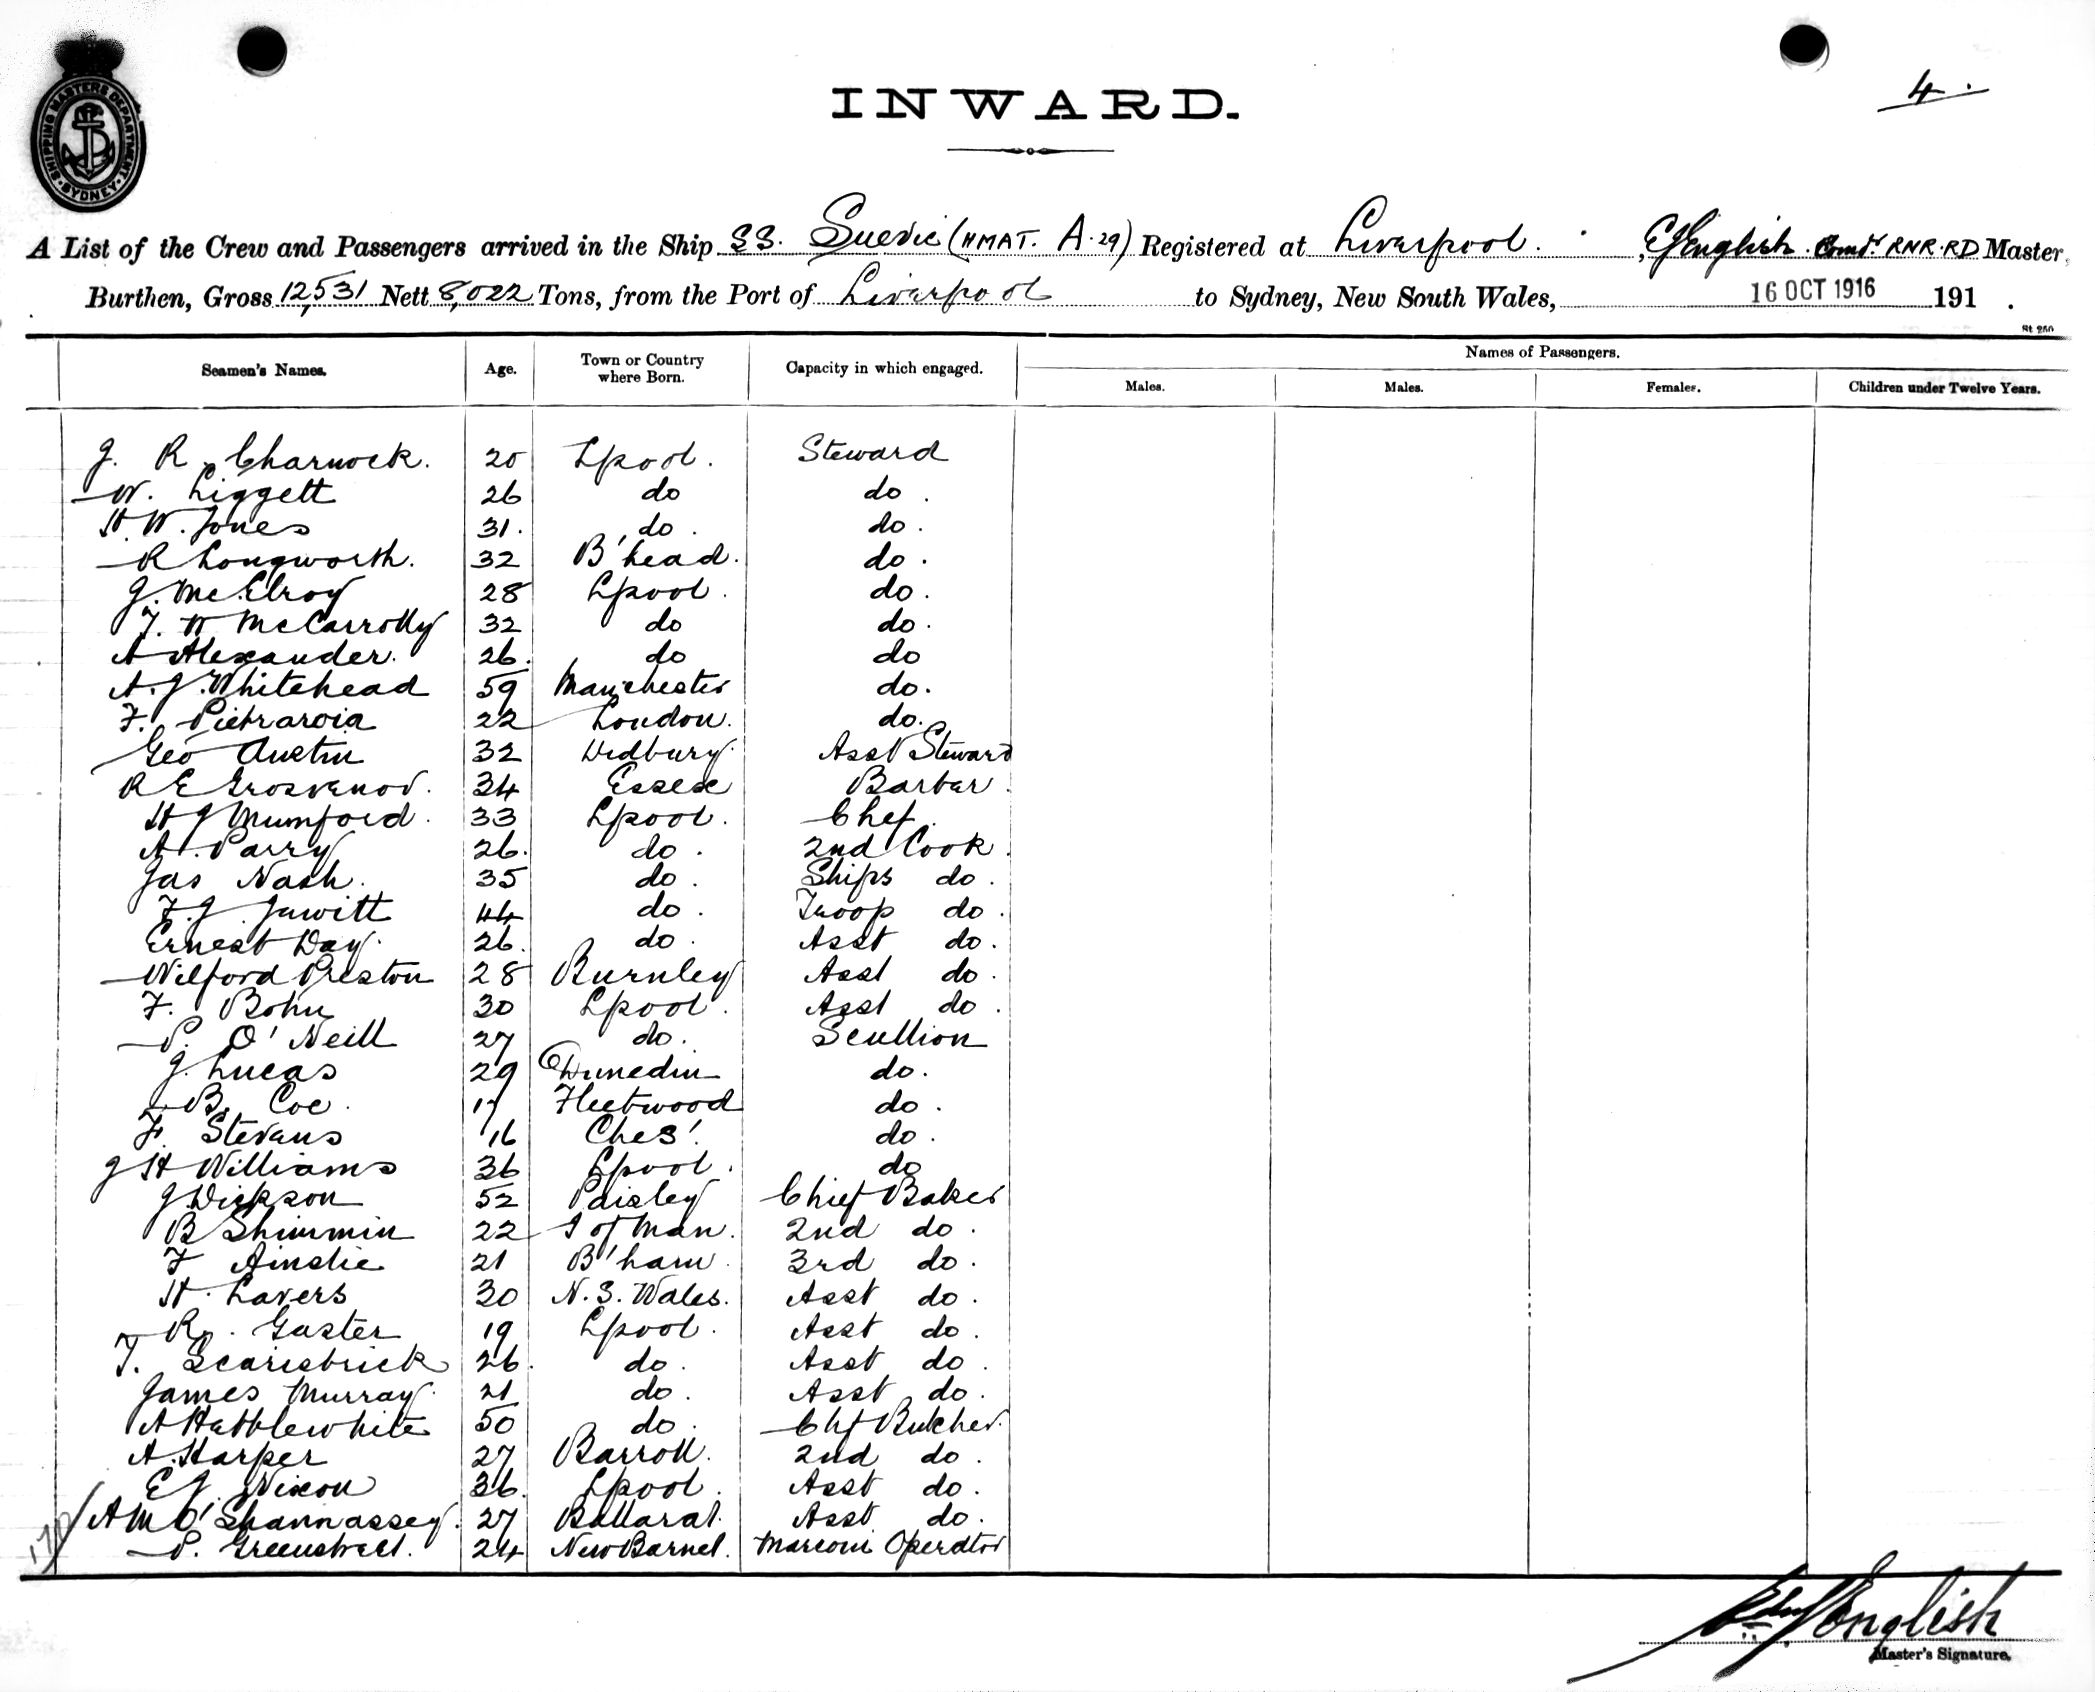 SHIPPING MASTERS DEPARTMENT SYDNEY
4.
INWARD.
A List of the Crew and Passengers arrived in the Ship SS. Suevic (HMAT. A.29) Registered at Liverpool. E J English. Comdr. RNR.RD Master,
Burthen, Gross 12,531 Nett 8,022 Tons, from the Port of Liverpool to Sydney, New South Wales, 16 OCT 1916 191 .
St 250
Seamen's Names. Age. Town or Country where Born. Capacity in which engaged. Names of Passengers.
Males. Males. Females. Children under Twelve Years.
J. R. Charnock. 20 Lpool. Steward
W. Liggett 26 do do.
H. W. Jones 31. do. do.
R Longworth. 32 B'head. do.
J. McElroy 28 Lpool. do.
T. W McCarrolly 32 do do.
A Alexander. 26. do do
A. J. Whitehead 59 Manchester do.
F. Pietraroia 22 London. do.
Geo Austin 32 Didbury. Asst Steward
R E Grosvenor. 34 Essex Barber.
H J Mumford. 33 Lpool. Chef.
A. Parry 26. do. 2nd Cook.
Jas Nash. 35 do. Ships do.
F. J. Jewitt 44 do. Troop do.
Ernest Day. 26. do. Asst do.
Wilford Preston 28 Burnley Asst do.
F. Bohn 30 Lpool. Asst do.
P. O'Neill 27 do. Scullion
J. Lucas 29 Dunedin do.
B. Coe. 17 Fleetwood do.
F. Stevens 16 Ches'. do.
J H Williams 36 Lpool. do
J Dickson 52 Paisley Chief Baker
B Shimmin 22 I of Man. 2nd do.
F Ainslie 21 B'ham. 3rd do.
H. Lavers 30 N.S. Wales. Asst do.
R. Gaster 19 Lpool. Asst do.
T. Scarisbrick 26. do. Asst do.
James Murray. 21 do. Asst do.
A Hebblewhite 50 do. Chf Butcher.
A. Harper 27 Barrow. 2nd do.
E J. Nixon 36. Lpool. Asst do.
A M O'Shannassey. 27 Ballarat. Asst do.
P. Greenstreet. 24 New Barnet. Marconi Operator
English
Master's Signature.